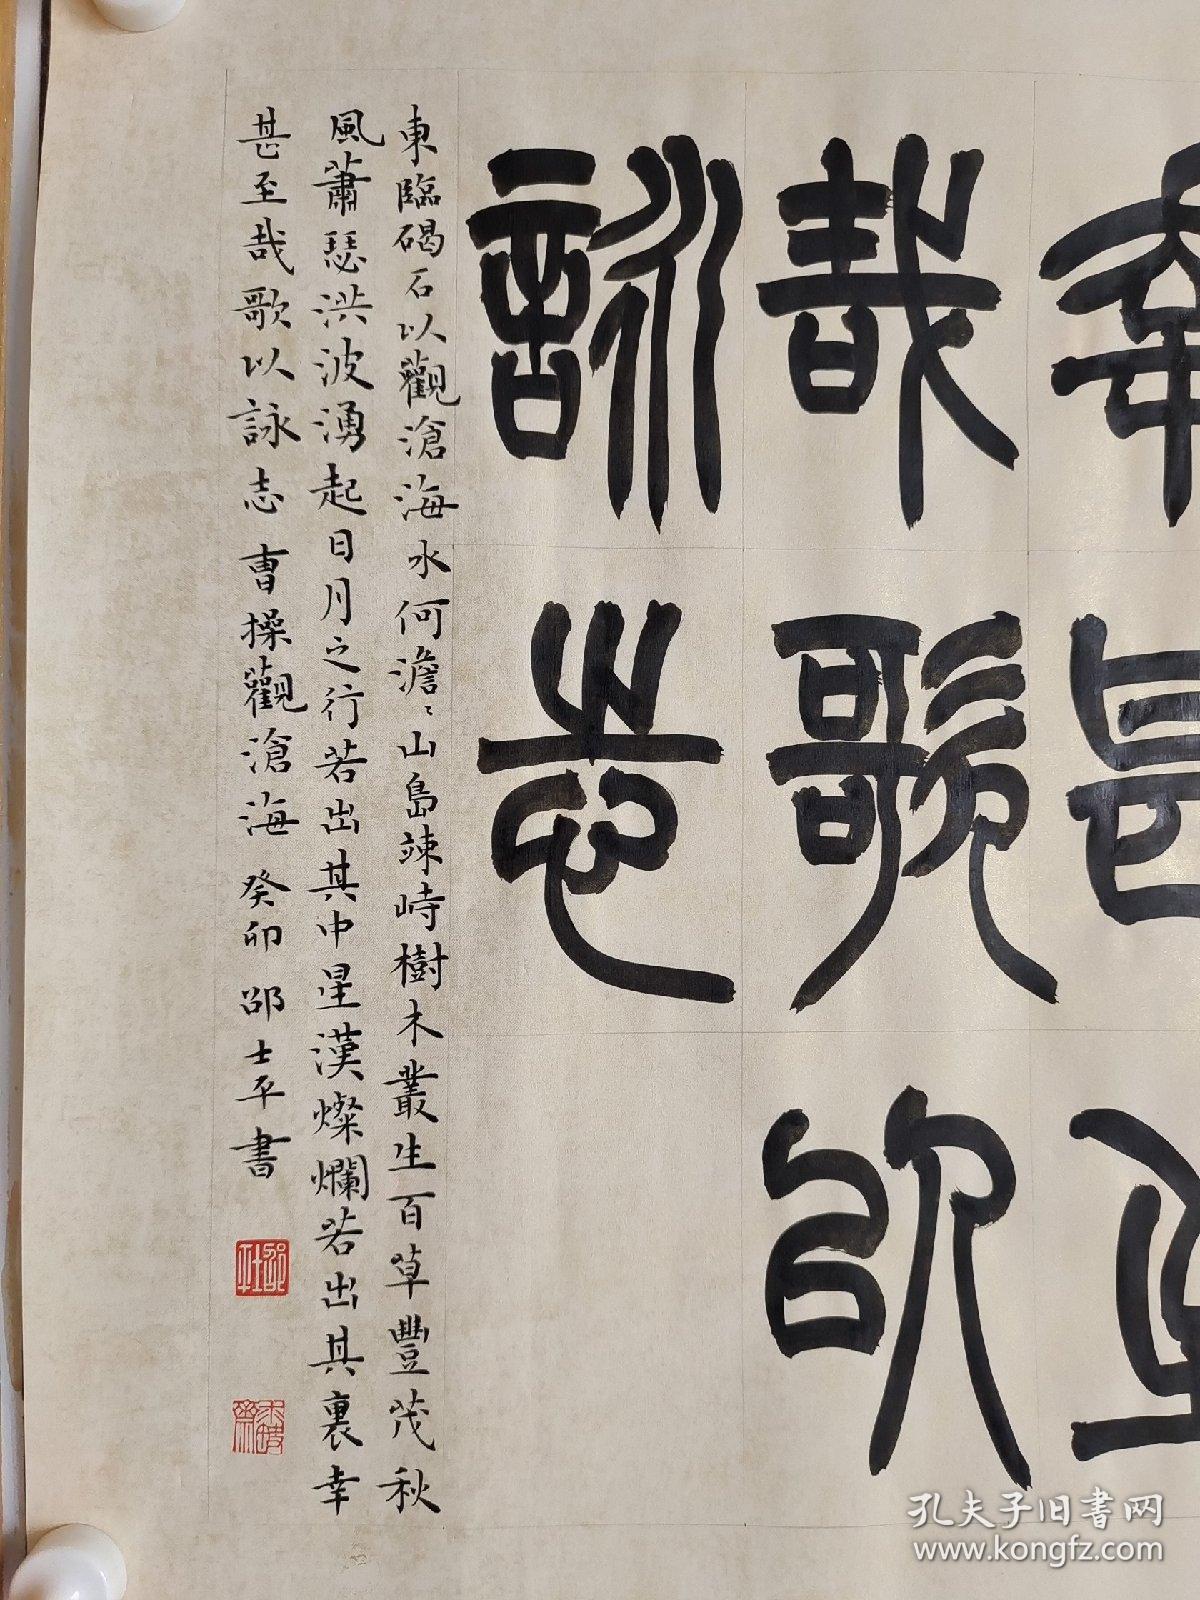 幸甚至
哉歌以
詠志
東臨碣石以觀滄海水何澹〻山島竦峙樹木叢生百草豐茂秋
風蕭瑟洪波湧起日月之行若出其中星漢燦爛若出其裏幸
甚至哉歌以詠志 曹操觀滄海 癸卯 邵士平書
孔夫子旧书网
www.kongfz.com